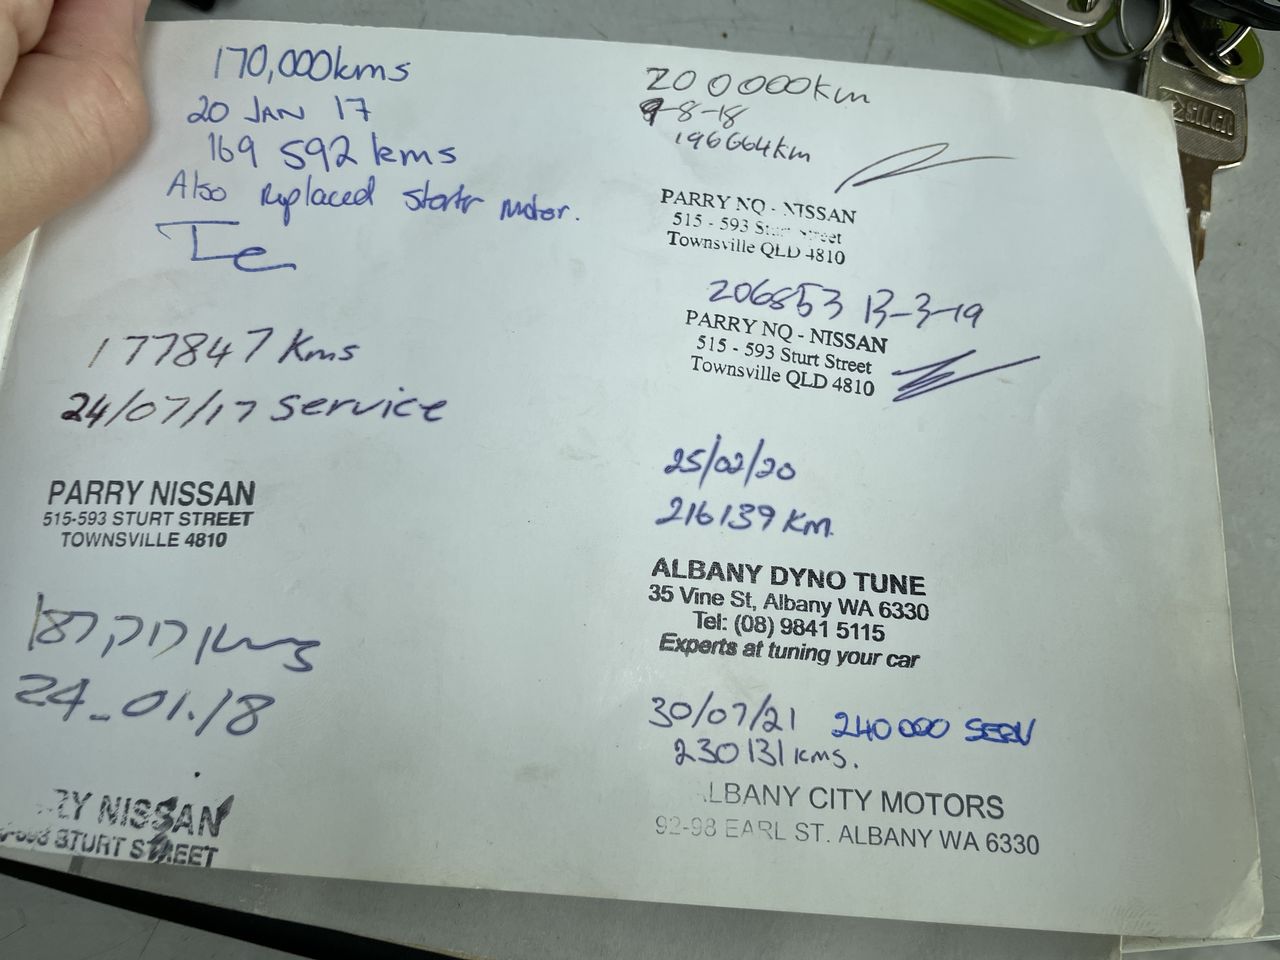 170,000kms
20 JAN 17
169 592 kms
Also Replaced startr motor.
177847 Kms
24/07/17 service
PARRY NISSAN
515-593 STURT STREET
TOWNSVILLE 4810
24-01./8
RY NISSAN
STURT STREET
200000km
9-8-18
196664km
PARRY NQ - NISSAN
515 - 593 Sturt Street
Townsville QLD 4810
206853 13-3-19
PARRY NQ - NISSAN
515 - 593 Sturt Street
Townsville QLD 4810
25/02/20
216139 Km.
ALBANY DYNO TUNE
35 Vine St, Albany WA 6330
Tel: (08) 9841 5115
Experts at tuning your car
30/07/21 240000 SERV
230131 kms.
ALBANY CITY MOTORS
92-98 EARL ST. ALBANY WA 6330
SILCA